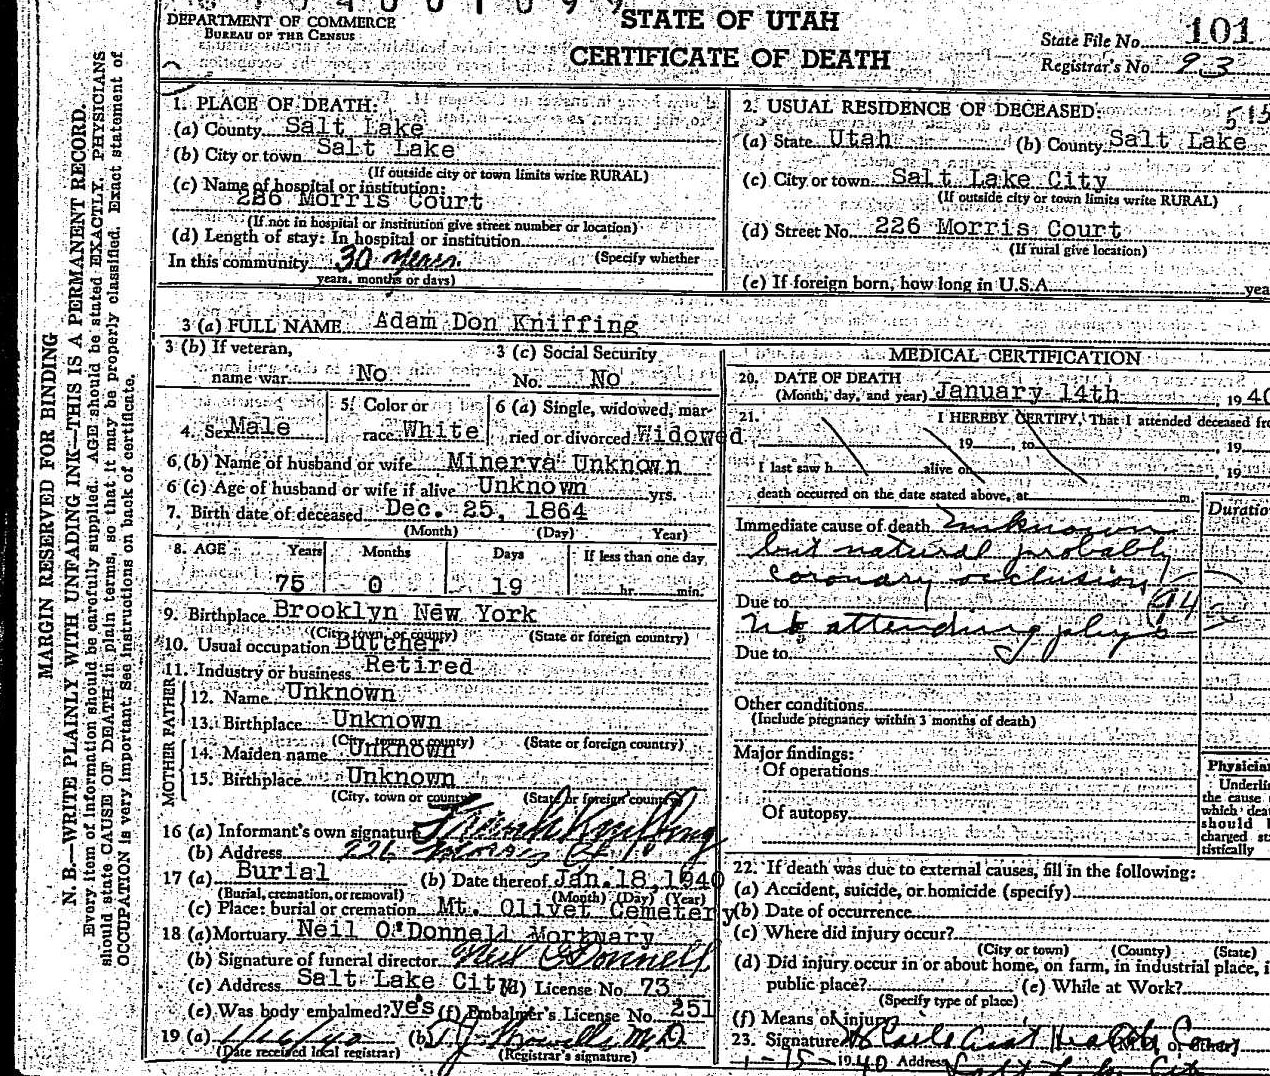 DEPARTMENT OF COMMERCE
BUREAU OF THE CENSUS
STATE OF UTAH
CERTIFICATE OF DEATH
State File No. 101
Registrar's No. 93
MARGIN RESERVED FOR BINDING
N. B.—WRITE PLAINLY WITH UNFADING INK—THIS IS A PERMANENT RECORD.
Every item of information should be carefully supplied. AGE should be stated EXACTLY. PHYSICIANS
should state CAUSE OF DEATH in plain terms, so that it may be properly classified. Exact statement of
OCCUPATION is very important. See instructions on back of certificate.
1. PLACE OF DEATH:
(a) County Salt Lake
(b) City or town Salt Lake
(If outside city or town limits write RURAL)
(c) Name of hospital or institution:
286 Morris Court
(If not in hospital or institution give street number or location)
(d) Length of stay: In hospital or institution
(Specify whether
In this community 30 years.
years, months or days)
2. USUAL RESIDENCE OF DECEASED:
(a) State Utah (b) County Salt Lake
(c) City or town Salt Lake City
(If outside city or town limits write RURAL)
(d) Street No. 226 Morris Court
(If rural give location)
(e) If foreign born, how long in U.S.A. yea
3 (a) FULL NAME Adam Don Kniffing
3 (b) If veteran,
name war No
3 (c) Social Security
No. No
4. Sex Male
5. Color or
race White
6 (a) Single, widowed, mar-
ried or divorced Widowed
6 (b) Name of husband or wife Minerva Unknown
6 (c) Age of husband or wife if alive Unknown yrs.
7. Birth date of deceased Dec. 25, 1864
(Month) (Day) Year)
8. AGE Years Months Days If less than one day
75 0 19 hr. min.
9. Birthplace Brooklyn New York
(City, town, or county) (State or foreign country)
10. Usual occupation Butcher
11. Industry or business Retired
FATHER
12. Name Unknown
13. Birthplace Unknown
(City, town or county) (State or foreign country)
MOTHER
14. Maiden name Unknown
15. Birthplace Unknown
(City, town or county) (State or foreign country)
16 (a) Informant's own signature
(b) Address 226 Morris Ct
17 (a) Burial (b) Date thereof Jan.18,1940
(Burial, cremation, or removal) (Month) (Day) (Year)
(c) Place: burial or cremation Mt. Olivet Cemetery
18 (a) Mortuary Neil O'Donnell Mortuary
(b) Signature of funeral director Neil O'Donnell
(c) Address Salt Lake City (d) License No. 73
(e) Was body embalmed? yes (f) Embalmer's License No. 251
19 (a) 1/16/40 (b) M.D.
(Date received local registrar) (Registrar's signature)
MEDICAL CERTIFICATION
20. DATE OF DEATH
(Month, day, and year) January 14th 1940
21. I HEREBY CERTIFY, That I attended deceased fro
, 19 , to , 19
I last saw h alive on , 19
death occurred on the date stated above, at m.
Duratio
Immediate cause of death Unknown
but natural probably
coronary occlusion
Due to 94
No attending phys
Due to
Other conditions
(Include pregnancy within 3 months of death)
Major findings:
Of operations
Of autopsy
Physician
Underlin
the cause
which dea
should b
charged st
tistically
22. If death was due to external causes, fill in the following:
(a) Accident, suicide, or homicide (specify)
(b) Date of occurrence
(c) Where did injury occur?
(City or town) (County) (State)
(d) Did injury occur in or about home, on farm, in industrial place, i
public place? (e) While at Work?
(Specify type of place)
(f) Means of injury
23. Signature
1-15-1940 Address